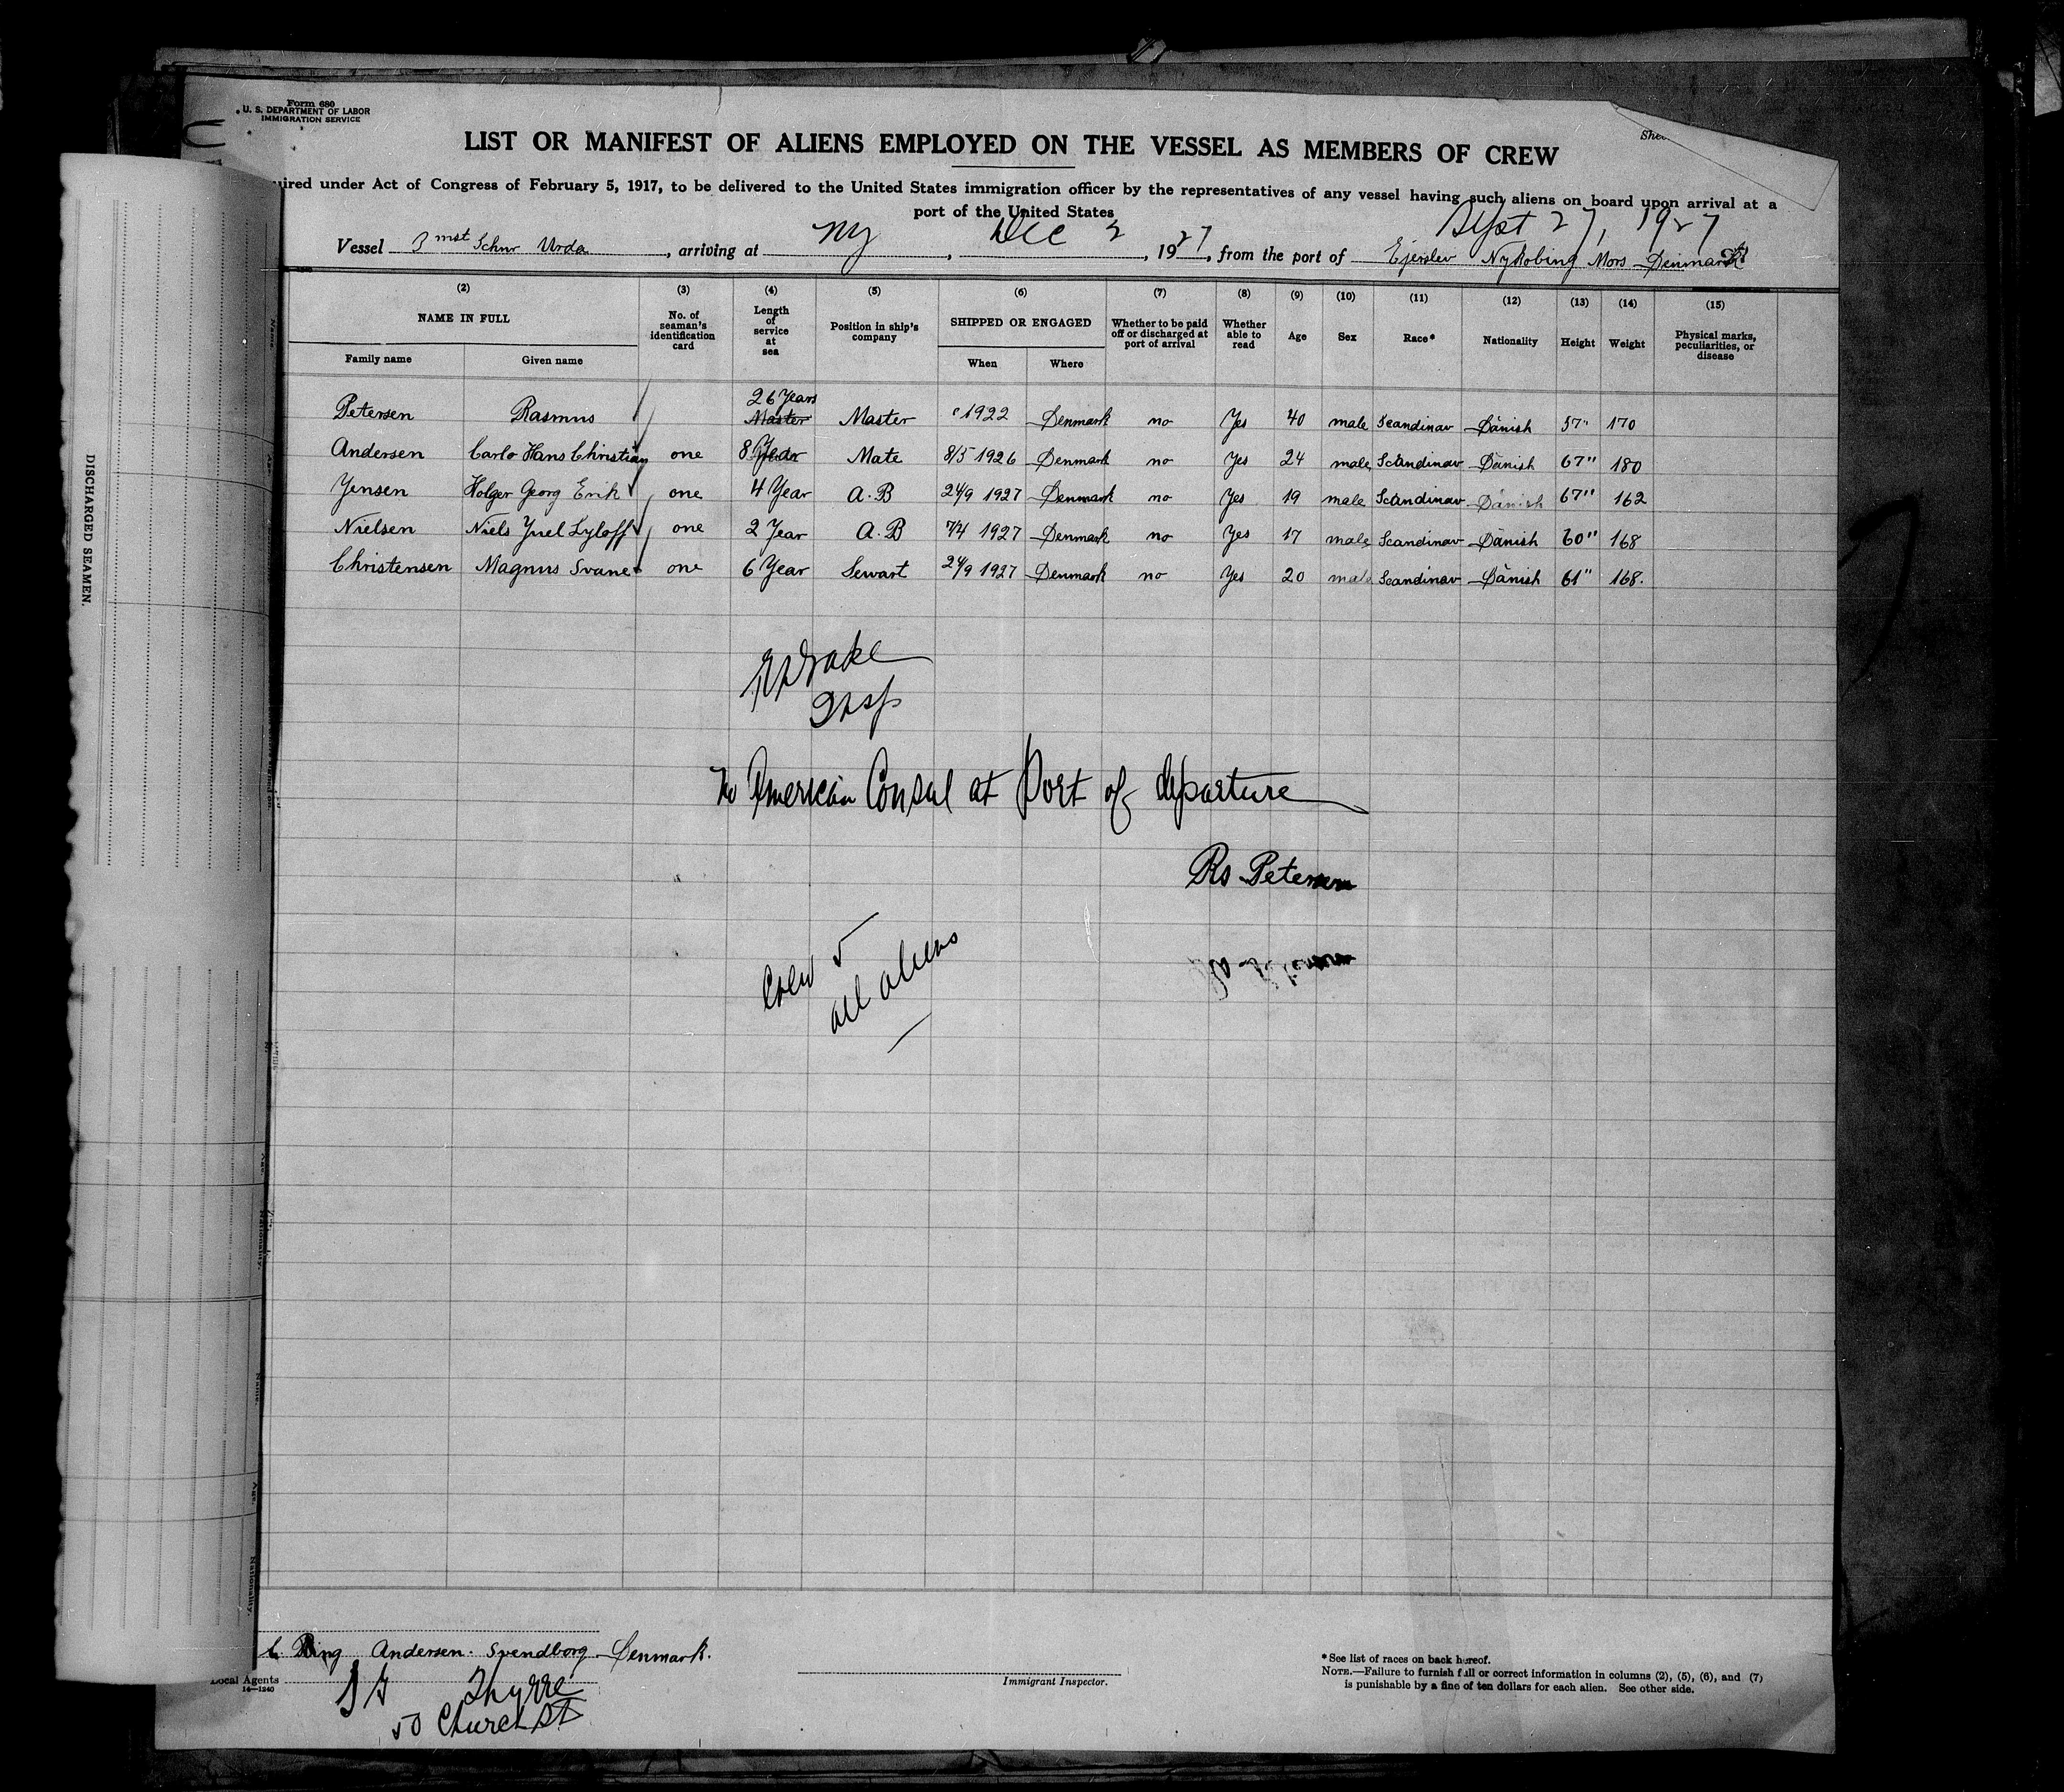 Form 680
U. S. DEPARTMENT OF LABOR
IMMIGRATION SERVICE
LIST OR MANIFEST OF ALIENS EMPLOYED ON THE VESSEL AS MEMBERS OF CREW
uired under Act of Congress of February 5, 1917, to be delivered to the United States immigration officer by the representatives of any vessel having such aliens on board upon arrival at a
port of the United States
Sept 27, 1927
Vessel 3 mst Schnr Urda, arriving at NY, Dec 2, 1927, from the port of Ejerslev Nykobing Mors Denmark
(2) (3) (4) (5) (6) (7) (8) (9) (10) (11) (12) (13) (14) (15)
NAME IN FULL No. of seaman's identification card Length of service at sea Position in ship's company SHIPPED OR ENGAGED Whether to be paid off or discharged at port of arrival Whether able to read Age Sex Race* Nationality Height Weight Physical marks, peculiarities, or disease
Family name Given name When Where
26 Years
Petersen Rasmus Master Master 1922 Denmark no Yes 40 male Scandinav Danish 57" 170
Andersen Carlo Hans Christian one 8 Year Mate 8/5 1926 Denmark no Yes 24 male Scandinav Danish 67" 180
Yensen Holger Georg Erik one 4 Year A.B 24/9 1927 Denmark no Yes 19 male Scandinav Danish 67" 162
Nielsen Niels Yuel Lyloff one 2 Year A.B 7/4 1927 Denmark no Yes 17 male Scandinav Danish 60" 168
Christensen Magnus Svane one 6 Year Sewart 24/9 1927 Denmark no Yes 20 male Scandinav Danish 61" 168.
Drake
Insp
No American Consul at Port of departure
Rs Petersen
Crew 5
all aliens
DISCHARGED SEAMEN.
C. Ring Andersen. Svendborg Denmark.
Local Agents
14—1240
Thyrre
50 Church St
Immigrant Inspector.
* See list of races on back hereof.
NOTE.—Failure to furnish full or correct information in columns (2), (5), (6), and (7)
is punishable by a fine of ten dollars for each alien. See other side.